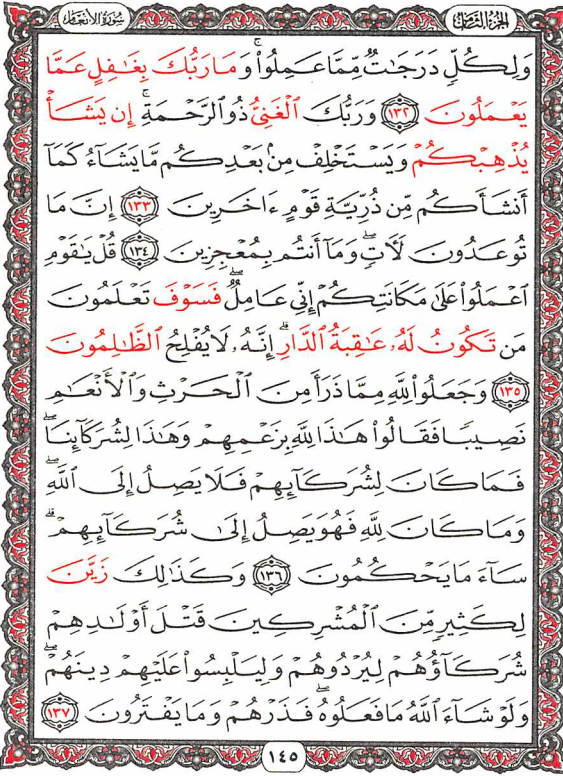 الجزء الثامن
سورة الأنعام
وَلِكُلٍّ دَرَجَٰتٌ مِّمَّا عَمِلُوا۟ۚ وَمَا رَبُّكَ بِغَٰفِلٍ عَمَّا
يَعْمَلُونَ ١٣٢ وَرَبُّكَ ٱلْغَنِىُّ ذُو ٱلرَّحْمَةِۚ إِن يَشَأْ
يُذْهِبْكُمْ وَيَسْتَخْلِفْ مِنۢ بَعْدِكُم مَّا يَشَآءُ كَمَآ
أَنشَأَكُم مِّن ذُرِّيَّةِ قَوْمٍ ءَاخَرِينَ ١٣٣ إِنَّ مَا
تُوعَدُونَ لَـَٔاتٍۖ وَمَآ أَنتُم بِمُعْجِزِينَ ١٣٤ قُلْ يَٰقَوْمِ
ٱعْمَلُوا۟ عَلَىٰ مَكَانَتِكُمْ إِنِّى عَامِلٌۖ فَسَوْفَ تَعْلَمُونَ
مَن تَكُونُ لَهُۥ عَٰقِبَةُ ٱلدَّارِۗ إِنَّهُۥ لَا يُفْلِحُ ٱلظَّٰلِمُونَ
١٣٥ وَجَعَلُوا۟ لِلَّهِ مِمَّا ذَرَأَ مِنَ ٱلْحَرْثِ وَٱلْأَنْعَٰمِ
نَصِيبًا فَقَالُوا۟ هَٰذَا لِلَّهِ بِزَعْمِهِمْ وَهَٰذَا لِشُرَكَآئِنَاۖ
فَمَا كَانَ لِشُرَكَآئِهِمْ فَلَا يَصِلُ إِلَى ٱللَّهِۖ
وَمَا كَانَ لِلَّهِ فَهُوَ يَصِلُ إِلَىٰ شُرَكَآئِهِمْۗ
سَآءَ مَا يَحْكُمُونَ ١٣٦ وَكَذَٰلِكَ زَيَّنَ
لِكَثِيرٍ مِّنَ ٱلْمُشْرِكِينَ قَتْلَ أَوْلَٰدِهِمْ
شُرَكَآؤُهُمْ لِيُرْدُوهُمْ وَلِيَلْبِسُوا۟ عَلَيْهِمْ دِينَهُمْۖ
وَلَوْ شَآءَ ٱللَّهُ مَا فَعَلُوهُۖ فَذَرْهُمْ وَمَا يَفْتَرُونَ ١٣٧
١٤٥